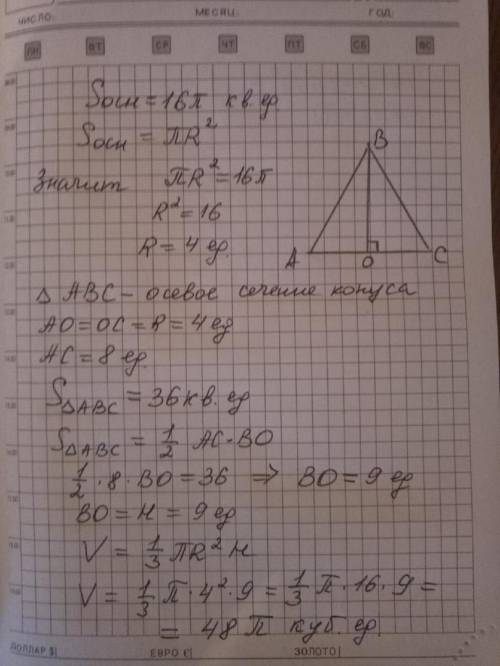 ЧИСЛО: МЕСЯЦ: ГОД:
ПН ВТ СР ЧТ ПТ СБ ВС
Sосн = 16π кв. ед
Sосн = πR²
Значит πR² = 16π
R² = 16
R = 4 ед.
B
A O C
△ ABC – осевое сечение конуса
AO = OC = R = 4 ед
AC = 8 ед.
S△ABC = 36 кв. ед
S△ABC = 1/2 AC·BO
1/2 · 8 · BO = 36 ⇒ BO = 9 ед
BO = H = 9 ед
V = 1/3 πR² H
V = 1/3 π · 4² · 9 = 1/3 π · 16 · 9 =
= 48 π куб. ед.
ДОЛЛАР $| ЕВРО €| ЗОЛОТО|